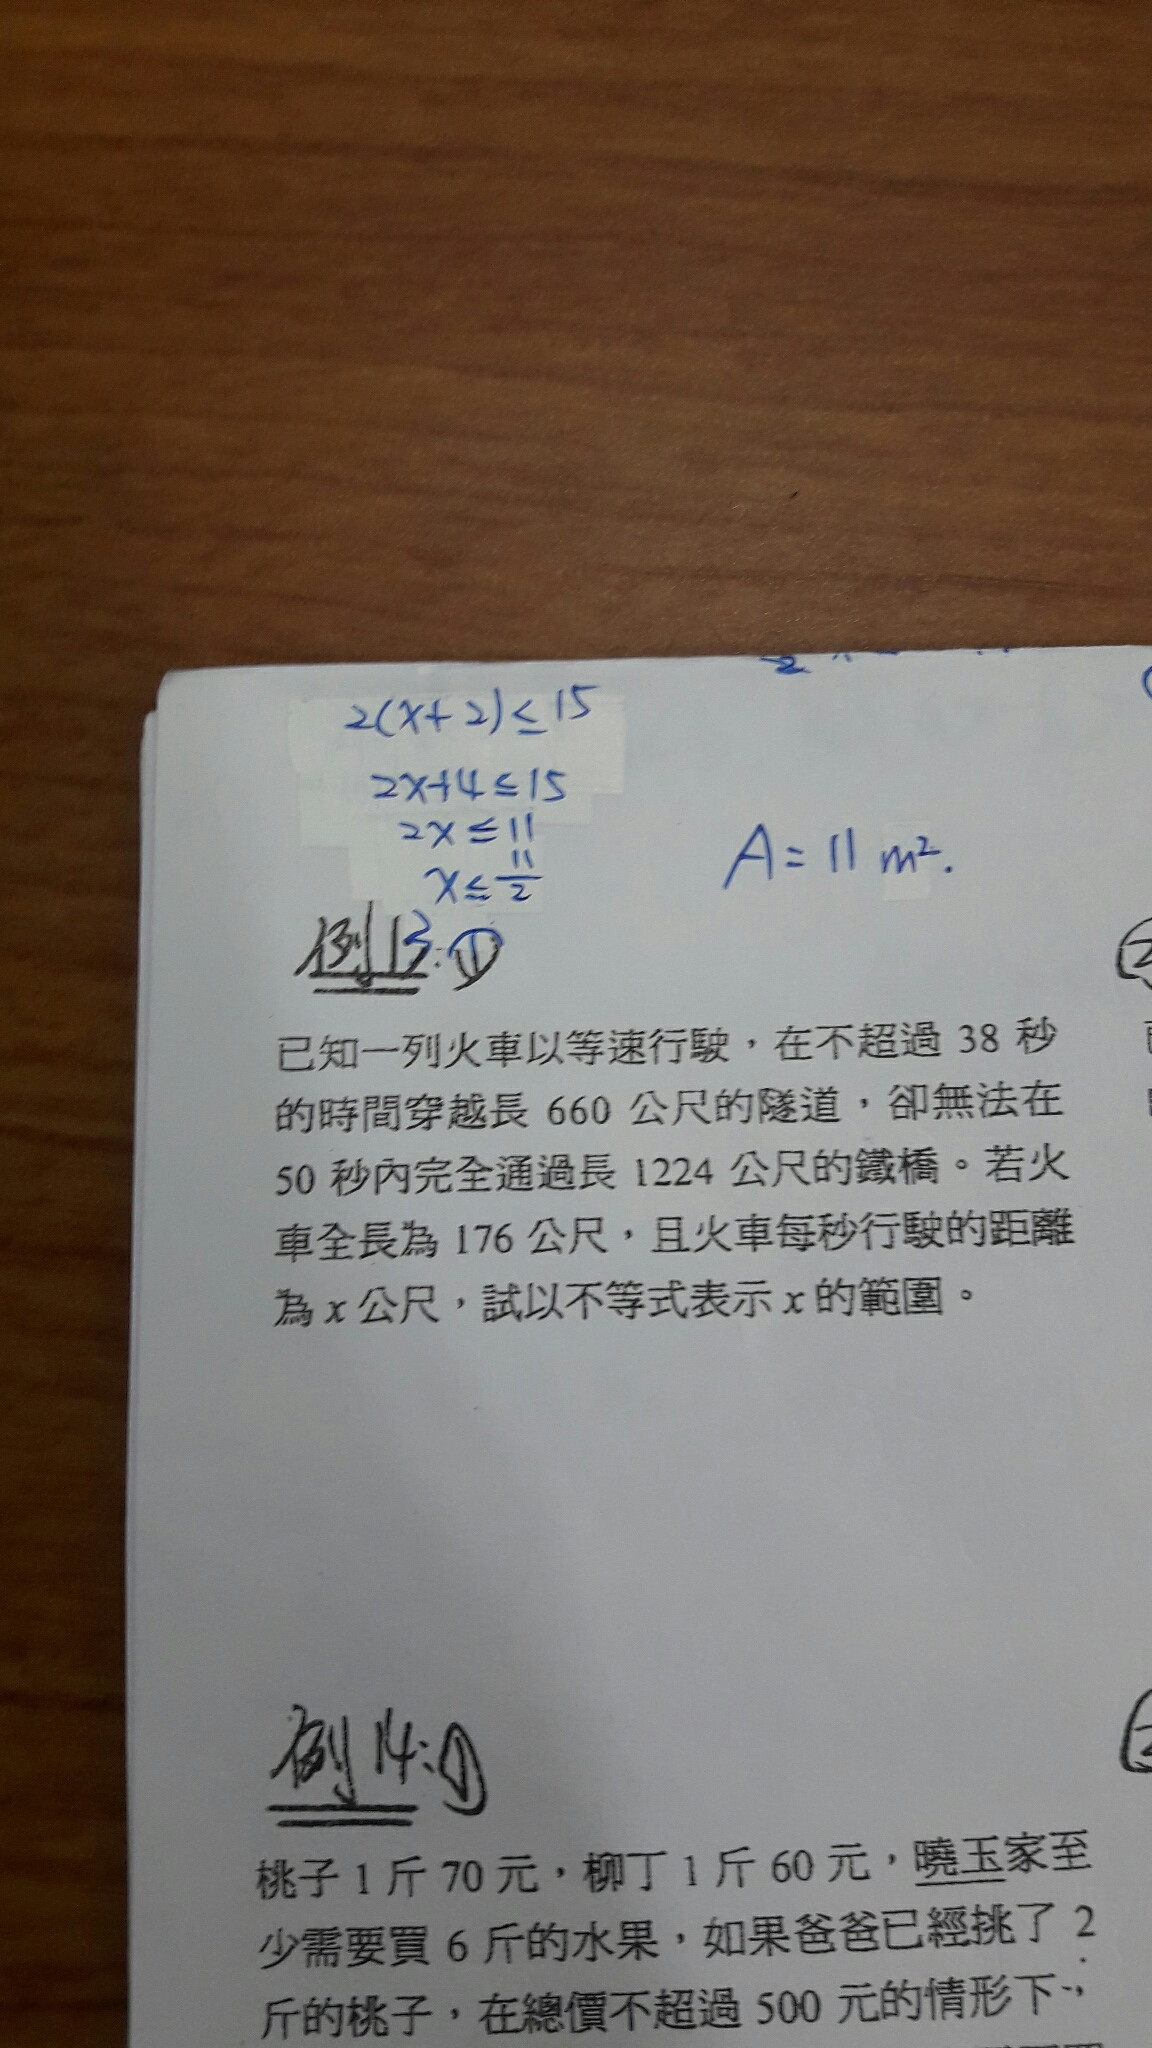 2(x+2)≤15
2x+4≤15
2x≤11
x≤11/2
A=11 m².
例13:①
已知一列火車以等速行駛，在不超過 38 秒
的時間穿越長 660 公尺的隧道，卻無法在
50 秒內完全通過長 1224 公尺的鐵橋。若火
車全長為 176 公尺，且火車每秒行駛的距離
為 x 公尺，試以不等式表示 x 的範圍。
例14:①
桃子 1 斤 70 元，柳丁 1 斤 60 元，曉玉家至
少需要買 6 斤的水果，如果爸爸已經挑了 2
斤的桃子，在總價不超過 500 元的情形下，